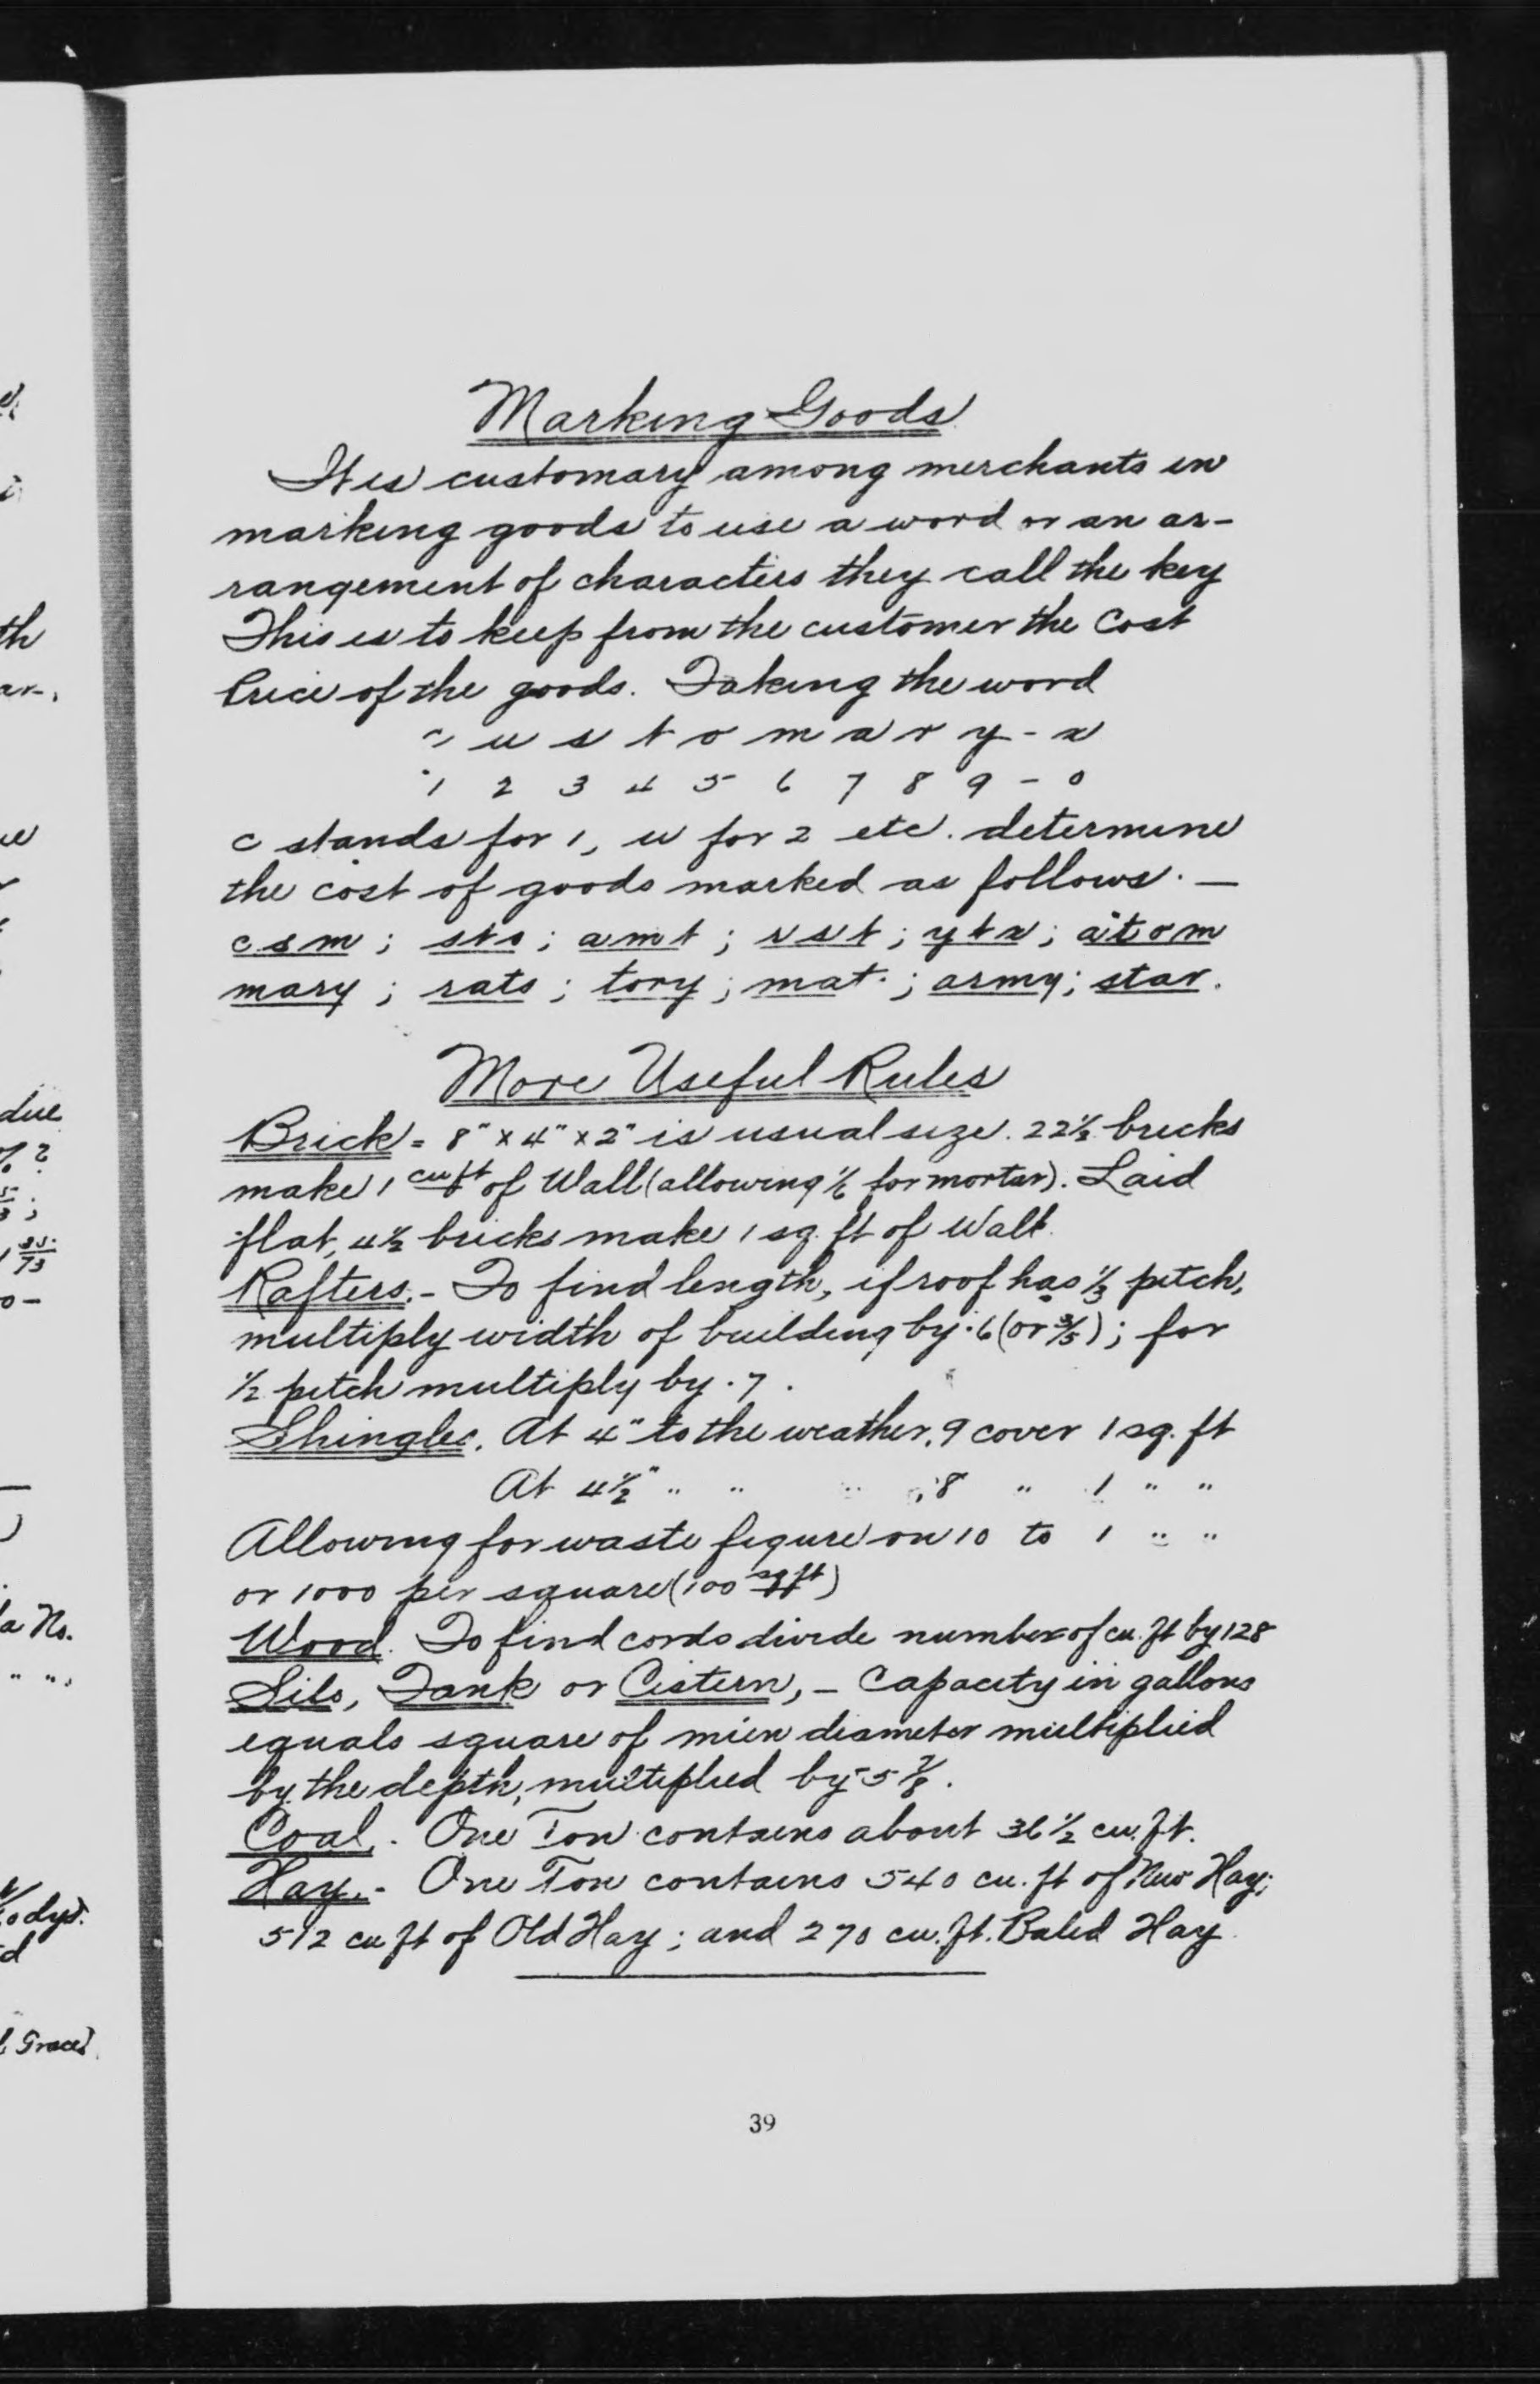 Marking Goods
It is customary among merchants in
marking goods to use a word or an ar-
rangement of characters they call the key
This is to keep from the customer the Cost
Price of the goods. Taking the word
c u s t o m a r y - x
1 2 3 4 5 6 7 8 9 - 0
c stands for 1, u for 2 etc. determine
the cost of goods marked as follows. —
csm; sto; amt; ; ytx; atom
mary; rats; tory; mat.; army; star.
More Useful Rules
Brick = 8" x 4" x 2" is usual size. 22½ bricks
make 1 cu ft of Wall (allowing 1/6 for mortar). Laid
flat, 4½ bricks make 1 sq. ft of Wall.
Rafters. - To find length, if roof has 1/3 pitch,
multiply width of building by .6 (or 3/5); for
1/2 pitch multiply by .7.
Shingles. At 4" to the weather, 9 cover 1 sq. ft
At 4½" " " " , 8 " 1 " "
Allowing for waste figure on 10 to 1 " "
or 1000 per square (100 sq ft)
Wood. To find cords divide number of cu. ft by 128
Silo, Tank or Cistern, - Capacity in gallons
equals square of mien diameter multiplied
by the depth, multiplied by 5 7/8.
Coal. - One Ton contains about 36½ cu. ft.
Hay. - One Ton contains 540 cu. ft of New Hay;
512 cu ft of Old Hay; and 270 cu. ft. Baled Hay
39
th
due
a No.
d